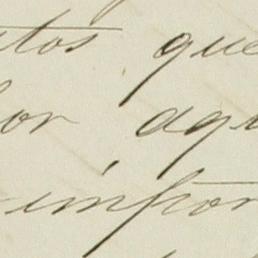 tos que
or aqu
impor